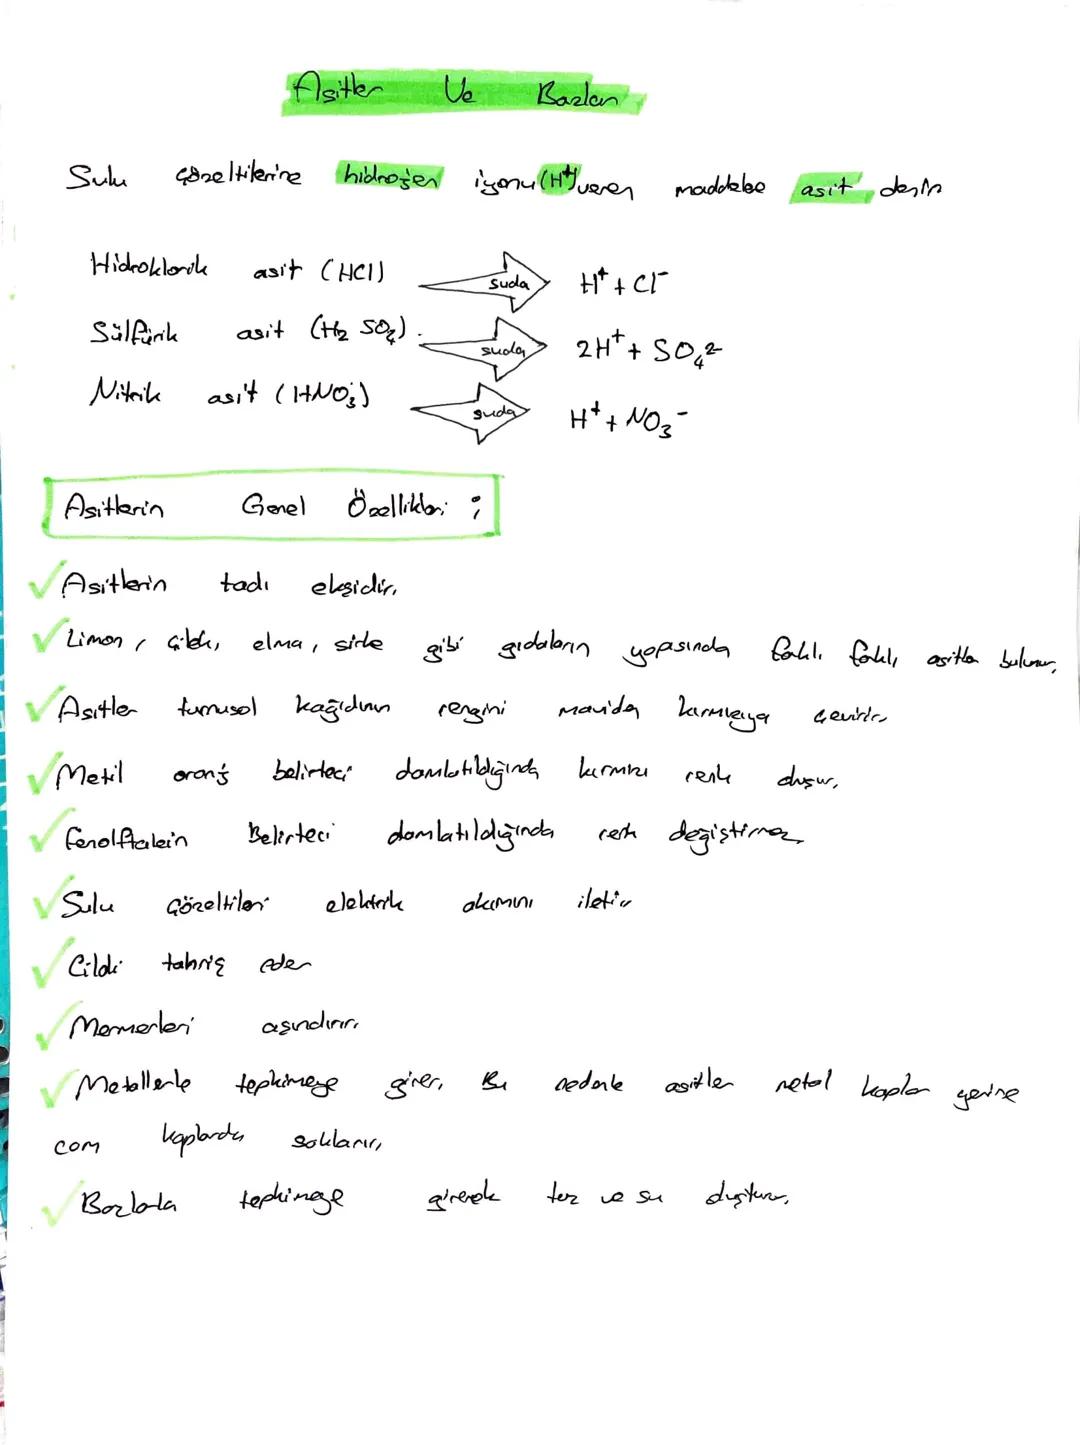 Asitler Ve Bazlar
Sulu çözeltilerine hidrojen iyonu (H⁺) veren maddelere asit denir
Hidroklorik asit (HCl) suda H⁺ + Cl⁻
Sülfürik asit (H₂SO₄) suda 2H⁺ + SO₄²⁻
Nitrik asit (HNO₃) suda H⁺ + NO₃⁻
Asitlerin Genel Özellikleri ;
Asitlerin tadı ekşidir.
Limon, çilek, elma, sirke gibi gıdaların yapısında farklı farklı asitler bulunur.
Asitler turnusol kağıdının rengini maviden kırmızıya çevirir.
Metil oranj belirteci damlatıldığında kırmızı renk oluşur.
Fenolftalein Belirteci damlatıldığında renk değiştirmez.
Sulu çözeltileri elektrik akımını iletir
Cildi tahriş eder
Mermerleri aşındırır.
Metallerle tepkimeye girer, Bu nedenle asitler metal kaplar yerine
cam kaplarda saklanır,
Bazlarla tepkimeye girerek tuz ve su oluşturur.